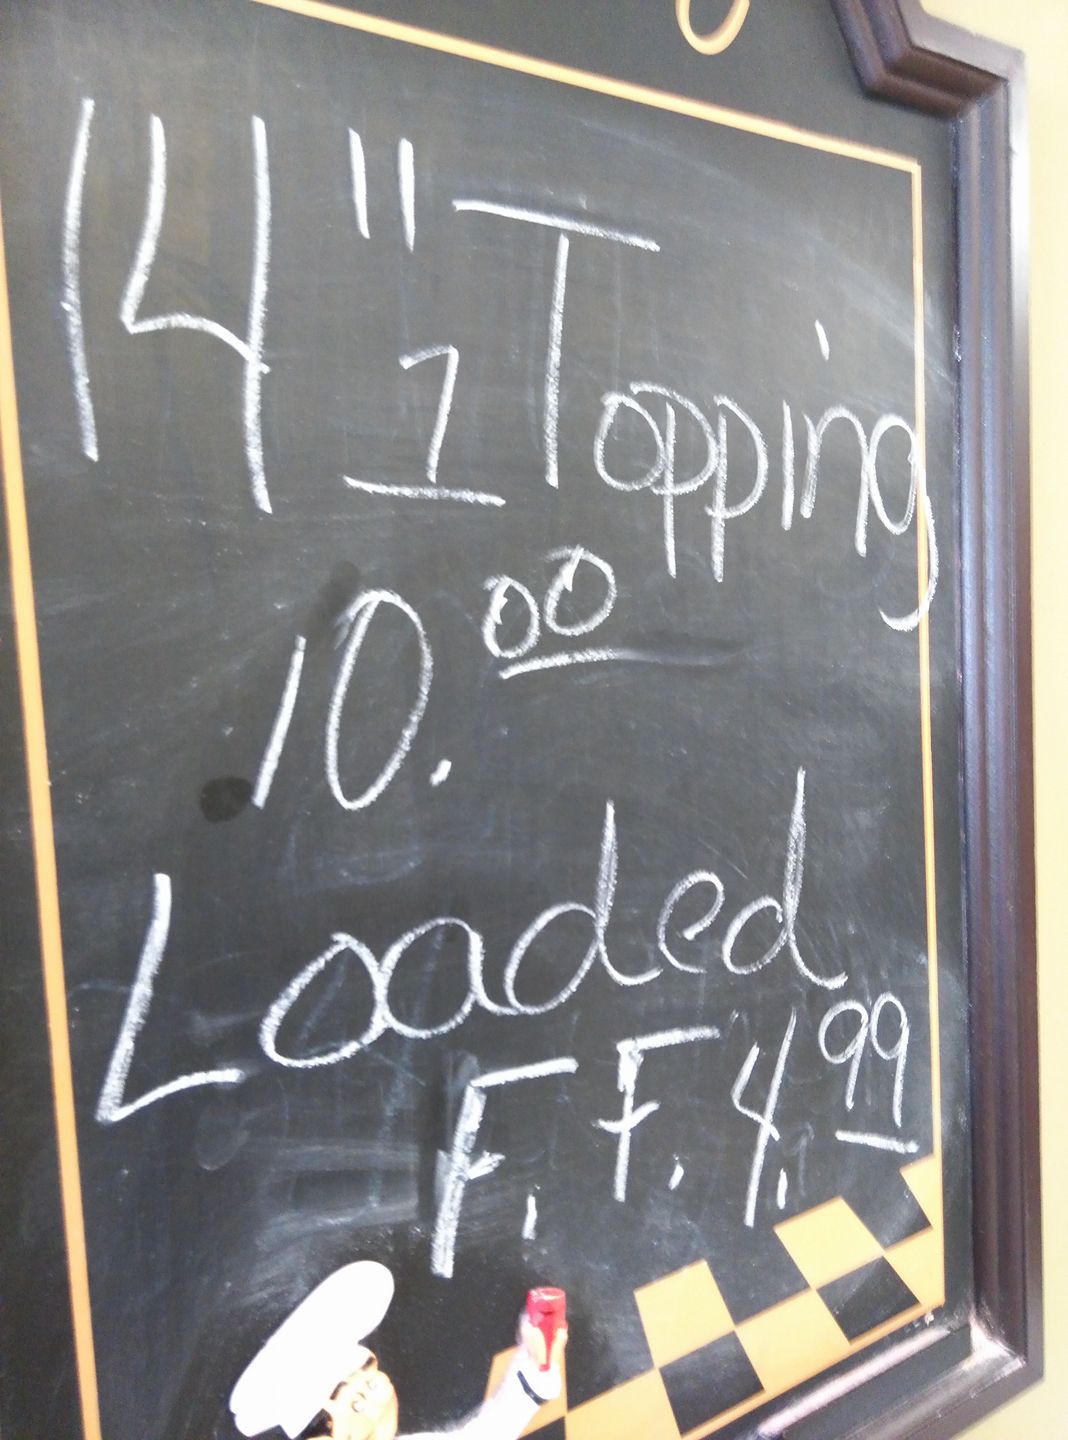 14" 1 Topping
10.00
Loaded
F. F. 4.99